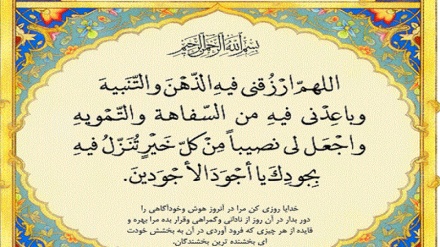 بسم الله الرحمن الرحیم
اللهمّ ارْزُقنی فیهِ الذّهْنَ والتّنبیهَ
وباعِدْنی فیهِ من السّفاهة والتّمْویهِ
واجْعَل لی نصیباً مِنْ كلّ خَیْرٍ تُنَزّلُ فیهِ
بِجودِكَ یا أجْوَدَ الأجْوَدینَ.
خدایا روزی کن مرا در آنروز هوش وخودآگاهی را
دور بدار در آن روز از نادانی وگمراهی وقرار بده مرا بهره و
فایده از هر چیزی که فرود آوردی در آن به بخشش خودت
ای بخشنده ترین بخشندگان.